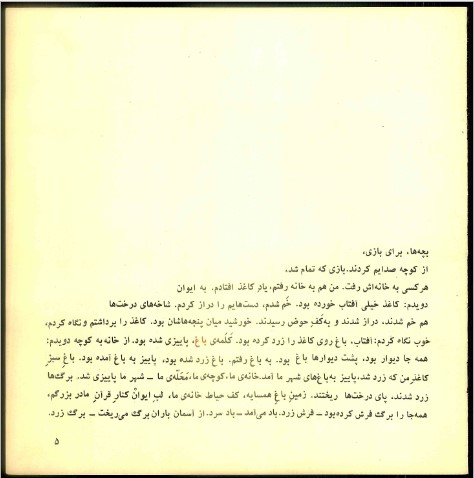 بچه‌ها، برای بازی،
از کوچه صدایم کردند. بازی که تمام شد،
هرکسی به خانه‌اش رفت. من هم به خانه رفتم، یاد کاغذ افتادم. به ایوان
دویدم: کاغذ خیلی آفتاب خورده بود. خَم شدم، دست‌هایم را دراز کردم. شاخه‌های درخت‌ها
هم خم شدند، دراز شدند و به‌کفِ حوض رسیدند. خورشید میان پنجه‌هاشان بود. کاغذ را برداشتم و نگاه کردم،
خوب نگاه کردم: آفتاب، باغِ روی کاغذ را زرد کرده بود. کَلَمه‌ی باغ، پاییزی شده بود. از خانه به کوچه دویدم:
همه جا دیوار بود، پشت دیوارها باغ بود. به باغ رفتم. باغ زرد شده بود، پاییز به باغ آمده بود. باغِ سبزِ
کاغذِ من که زرد شد، پاییز به‌باغ‌های شهر ما آمد. خانه‌ی ما، کوچه‌ی ما، مَحَلّه‌ی ما – شهر ما پاییزی شد. برگ‌ها
زرد شدند، پای درخت‌ها ریختند. زمینِ باغِ همسایه، کف حیاط خانه‌ی ما، لبِ ایوانْ کنارِ قرآنِ مادر بزرگم،
همه‌جا را برگ فرش کرده‌بود – فرش زرد. باد می‌آمد – باد سرد. از آسمان باران برگ می‌ریخت – برگ زرد.
۵